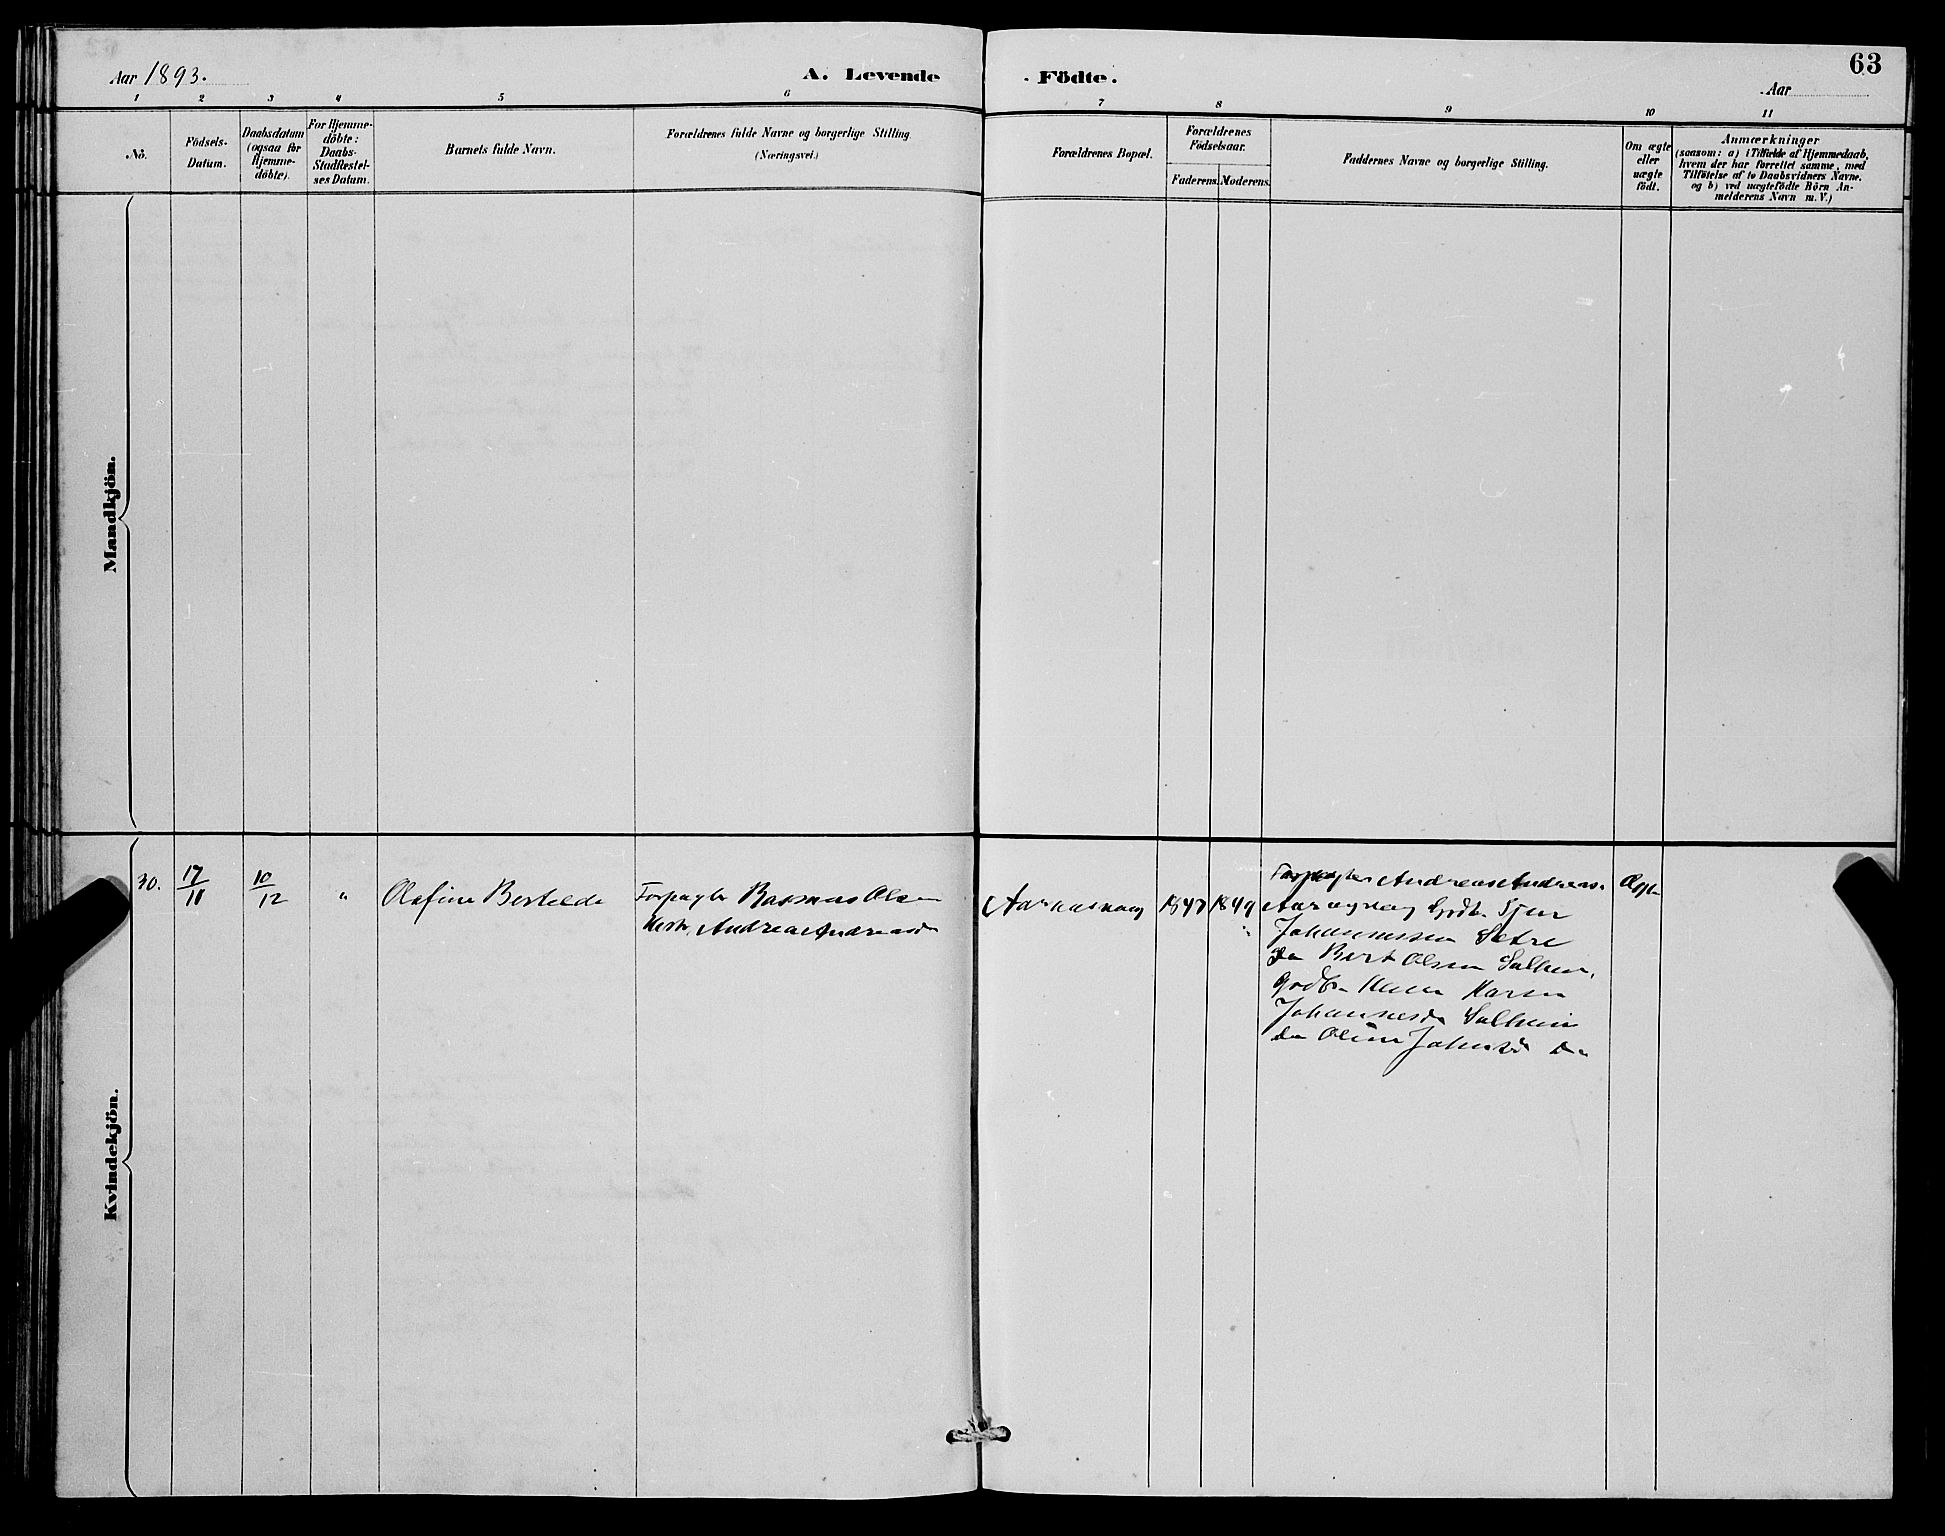 63
Aar 1893.
A. Levende
Födte.
Aar
1 2 3 4 5 6 7 8 9 10 11
No.
Födsels-
Datum.
Daabsdatum
(ogsaa for
Hjemme-
döbte).
For Hjemme-
döbte:
Daabs-
Stadfæstel-
ses Datum.
Barnets fulde Navn.
Forældrenes fulde Navne og borgerlige Stilling
(Næringsvei.)
Forældrenes Bopæl.
Forældrenes
Födselsaar.
Faderens. Moderens.
Faddernes Navne og borgerlige Stilling.
Om ægte
eller
uægte
födt.
Anmærkninger
(saasom: a) i Tilfælde af Hjemmedaab,
hvem der har forrettet samme, med
Tilföielse af to Daabsvidners Navne,
og b) ved uægtefödte Börn An-
melderens Navn m.V.)
Mandkjön.
Kvindekjön.
30.
17
11
10
12
"
Olafine Bertilde
Forpagter Rasmus Olsen
Andrea Andreasd
1849
Forpagter Andreas Andreas.
Godb. Sjur
Johannessen Sætre
Do Bert Olsen
Karen
Johannesd.
Do
Ægte